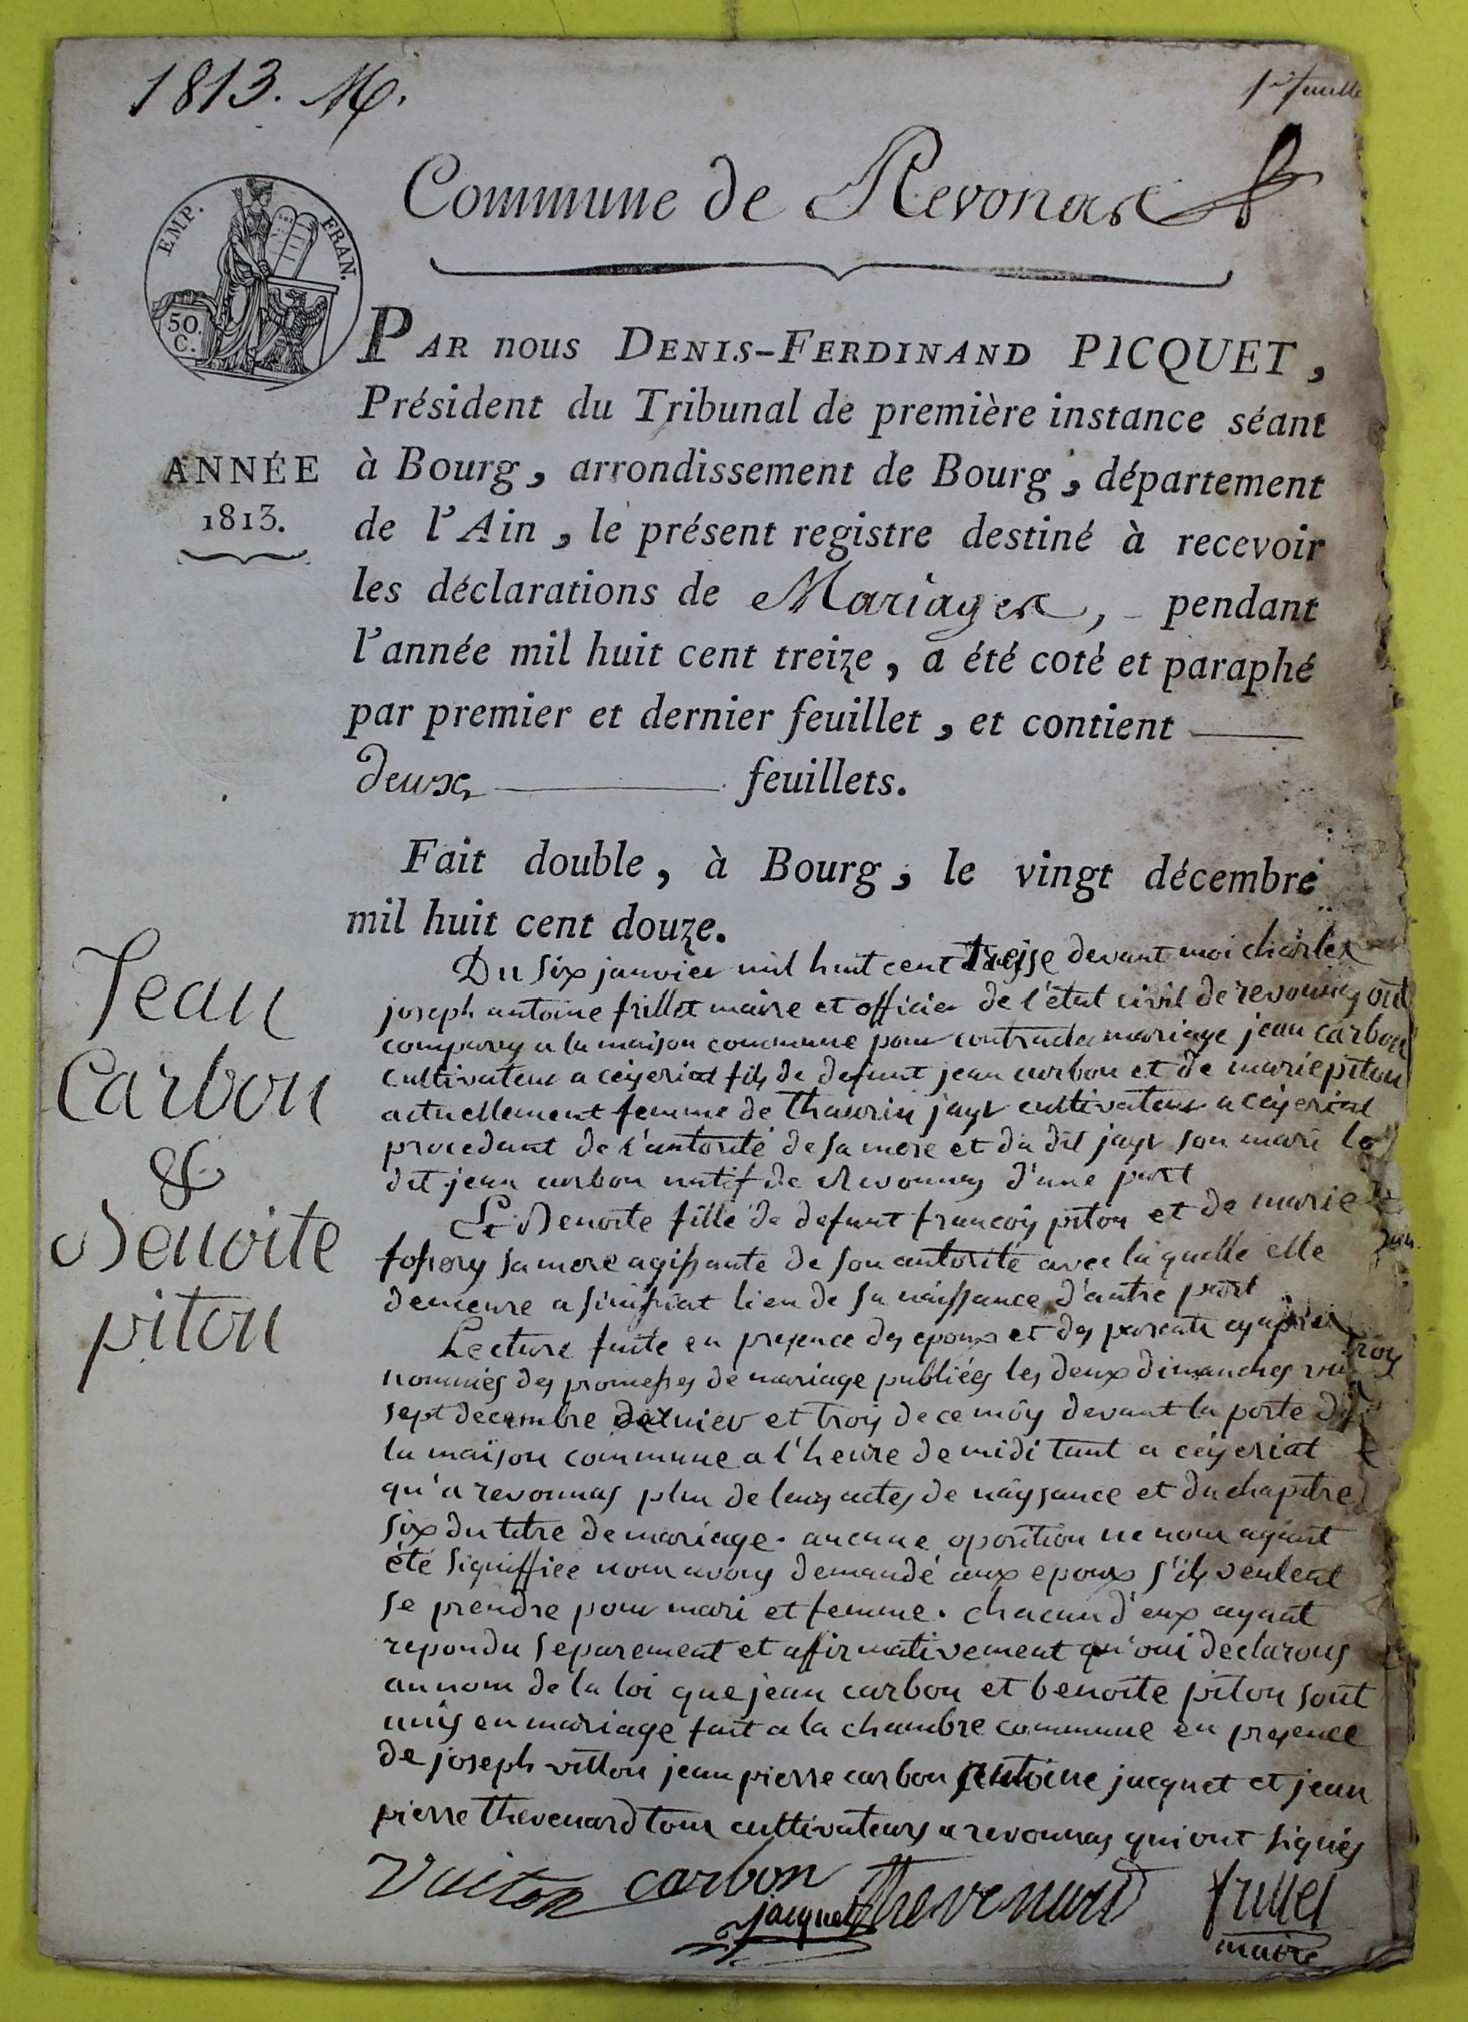 1813. M.
1er feuillet
Commune de Revonas
EMP. FRAN.
50. C.
PAR nous DENIS-FERDINAND PICQUET,
Président du Tribunal de première instance séant
ANNÉE
1813.
à Bourg, arrondissement de Bourg, département
de l'Ain, le présent registre destiné à recevoir
les déclarations de Mariages, pendant
l'année mil huit cent treize, a été coté et paraphé
par premier et dernier feuillet, et contient
deux feuillets.
Fait double, à Bourg, le vingt décembre
mil huit cent douze.
Jean
Carbon
&
Benoite
piton
Du six janvier mil huit cent treise devant moi charles
joseph antoine frillet maire et officier de l'état civil de revonnas ont
comparus a la maison commune pour contracter mariage jean carbon
cultivateur a ceyseriat fils de defunt jean carbon et de marie piton
actuellement femme de Thaurin jayr cultivateur a ceyseriat
procedant de l'autorité de sa mere et du dit jayr son mari le
dit jean carbon natif de Revonnas d'une part
Et Benoite fille de defunt françois piton et de marie
sa mere agissante de son autorité avec laquelle elle
demeure a lieu de sa naissance d'autre part
Lecture faite en presence des epoux et des parents cy
nommés des promesses de mariage publiées les deux dimanches
sept decembre dernier et trois de ce mois devant la porte de
la maison commune a l'heure de midi tant a ceyseriat
qu'a revonnas plus de leurs actes de naissance et du chapitre
six du titre de mariage. aucune oposition ne nous ayant
été signiffiée nous avons demandé aux epoux s'ils veulent
se prendre pour mari et femme. chacun d'eux ayant
repondu separement et affirmativement qu'oui declarons
au nom de la loi que jean carbon et benoite piton sont
unis en mariage fait a la chambre commune en presence
de joseph vitton jean pierre carbon antoine jacquet et jean
pierre thevenard tous cultivateurs a revonnas qui ont signés
Vuiton carbon Thevenard frillet
jacquet maire